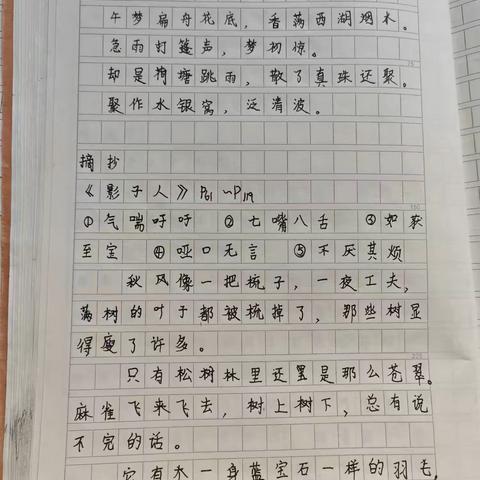 午梦扁舟花底，香满西湖烟水。
急雨打篷声，梦初惊。
却是荷塘跳雨，散了真珠还聚。
聚作水银窝，泛清波。
摘抄
《影子人》P61~P119
①气喘吁吁 ②七嘴八舌 ③如获
至宝 ④哑口无言 ⑤不厌其烦
秋风像一把梳子，一夜工夫，
满树的叶子都被梳掉了，那些树显
得瘦了许多。
只有松树林里还是那么苍翠。
麻雀飞来飞去，树上树下，总有说
不完的话。
它有木一身蓝宝石一样的羽毛，